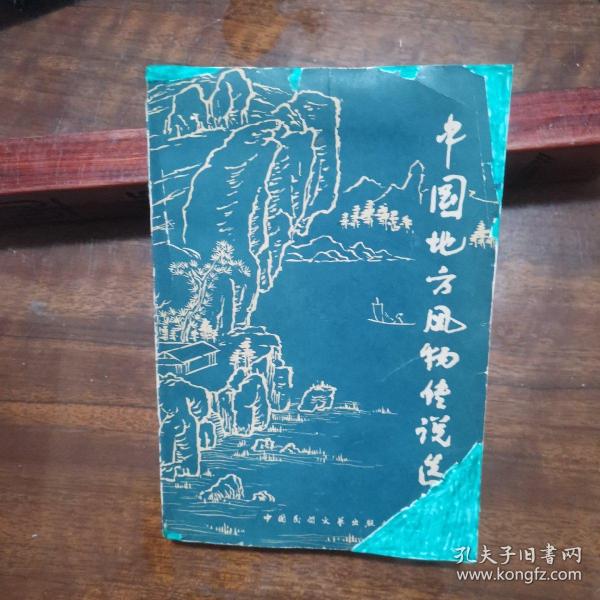 中国地方风物传说选
中国民间文艺出版
孔夫子旧书网
www.kongfz.com